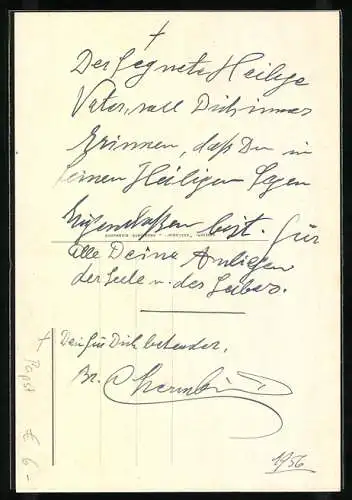 Der segnete Heilige
Vater, soll Dich immer
erinnern, daß Du in
seinen Heiligen Segen
eingeschloßen bist. Für
alle Deine Anliegen
der Seele u. des Leibes.
Dein für Dich betender,
Br. Cherubin
+ Papst € 6-
1956